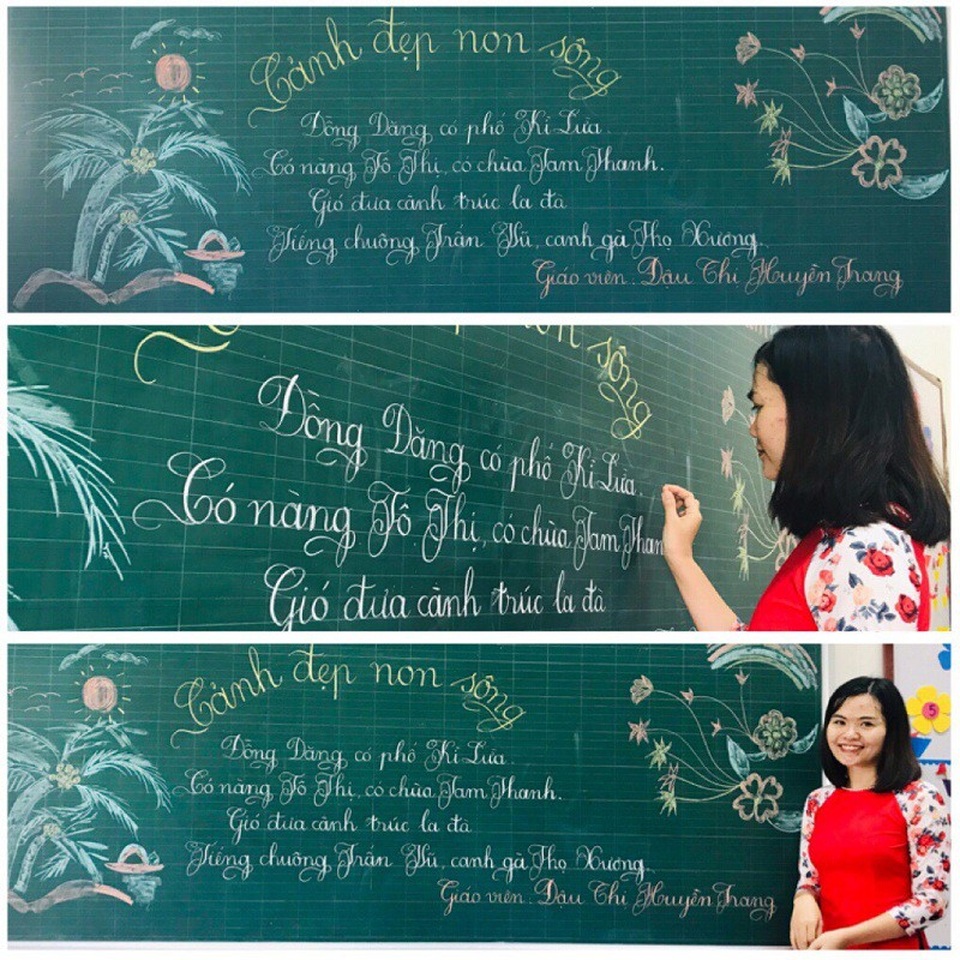 Cảnh đẹp non sông
Đồng Đăng có phố Kì Lừa.
Có nàng Tô Thị, có chùa Tam Thanh.
Gió đưa cành trúc la đà
Tiếng chuông Trấn Vũ, canh gà Thọ Xương.
Giáo viên: Đậu Thị Huyền Trang
non sông
Đồng Đăng có phố Kì Lừa.
Có nàng Tô Thị, có chùa Tam Than
Gió đưa cành trúc la đà
Cảnh đẹp non sông
Đồng Đăng có phố Kì Lừa.
Có nàng Tô Thị, có chùa Tam Thanh.
Gió đưa cành trúc la đà
Tiếng chuông Trấn Vũ, canh gà Thọ Xương.
Giáo viên: Đậu Thị Huyền Trang
5